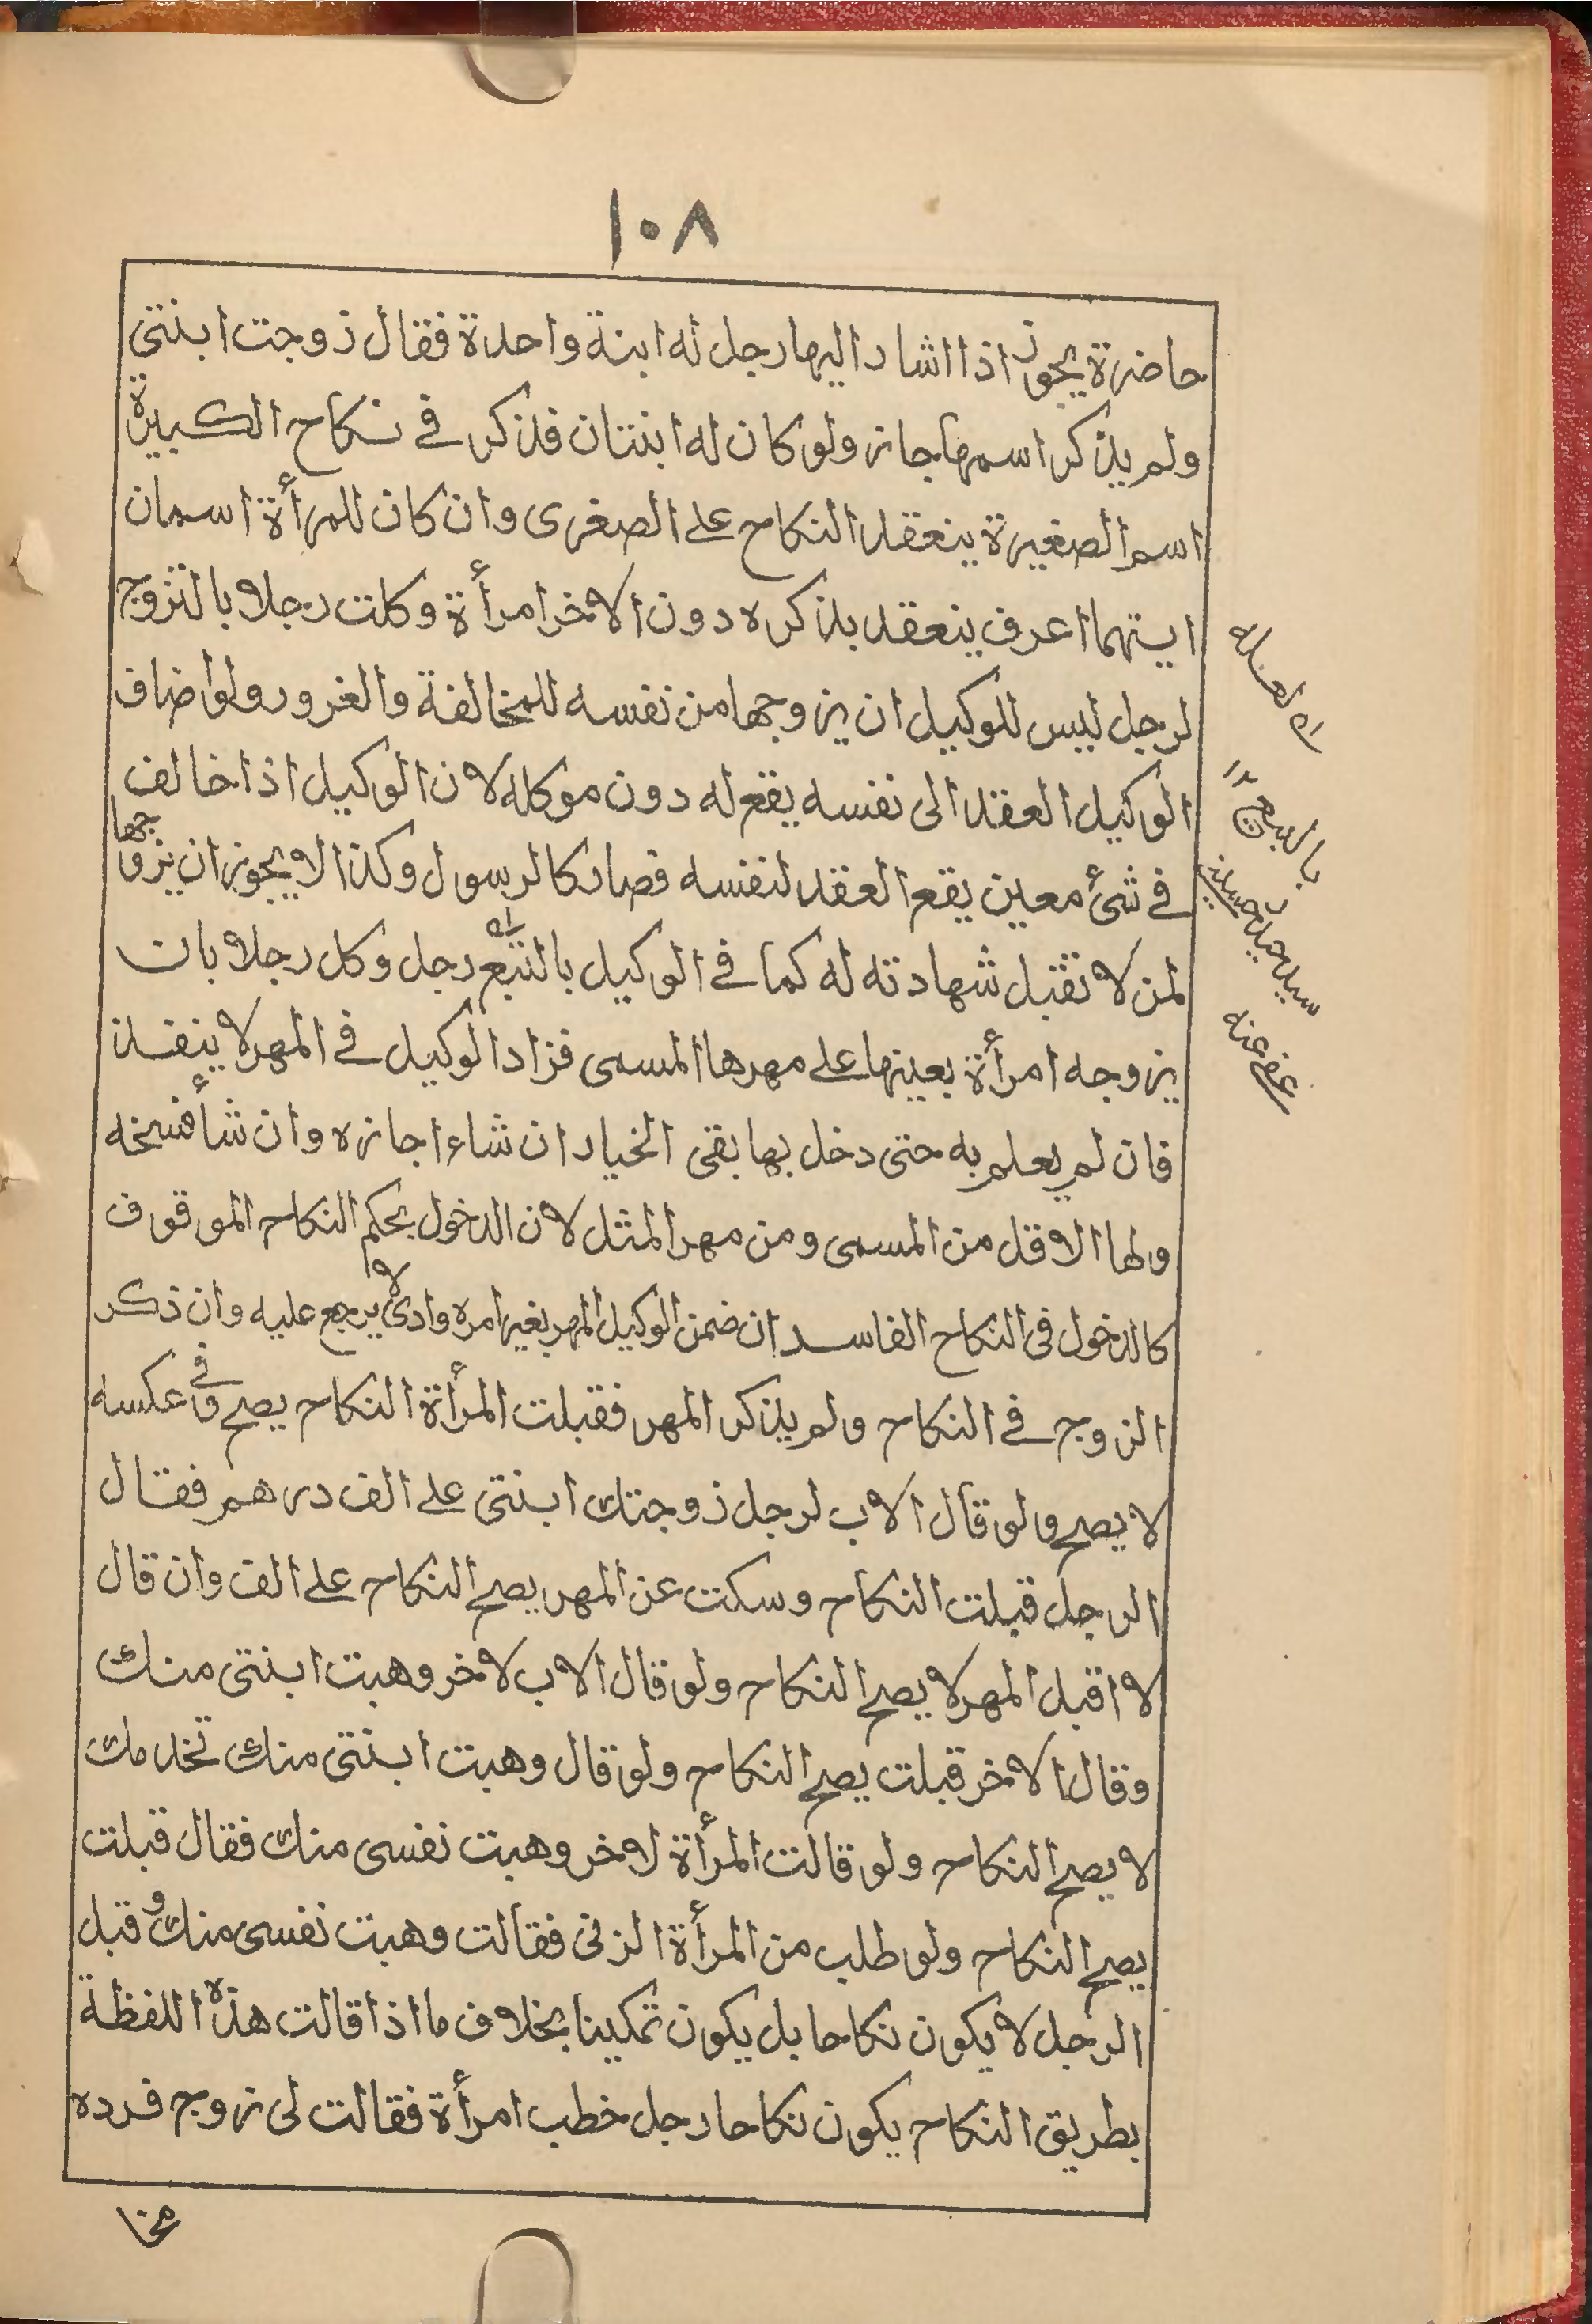 ١٠٨
حاضرة يجوز اذا اشار اليها رجل له ابنة واحدة فقال زوجت ابنتى
ولم يذكر اسمها جاز ولو كان له ابنتان فذكر فى نكاح الكبيرة
اسم الصغيرة ينعقد النكاح على الصغرى وان كان للمرأة اسمان
ايتهما اعرف ينعقد بذكره دون الاخر امرأة وكلت رجلا بالتزوج
لرجل ليس للوكيل ان يزوجها من نفسه للمخالفة والغرور ولو اضاف
الوكيل العقد الى نفسه يقع له دون موكله لان الوكيل اذا خالف
فى شئ معين يقع العقد لنفسه فصار كالرسول وكذا لا يجوز ان يزوجها
لمن لا تقبل شهادته له كما فى الوكيل بالتبع رجل وكل رجلا بان
يزوجه امرأة بعينها على مهرها المسمى فزاد الوكيل فى المهر لا ينفذ
فان لم يعلم به حتى دخل بها بقى الخيار ان شاء اجازه وان شأ فسخه
ولها الاقل من المسمى ومن مهر المثل لان الدخول بحكم النكاح الموقوف
كالدخول فى النكاح الفاسد ان ضمن الوكيل المهر بغير امره وادى لا يرجع عليه وان ذكر
الزوج فى النكاح ولم يذكر المهر فقبلت المرأة النكاح يصح وفى عكسه
لا يصح ولو قال الاب لرجل زوجتك ابنتى على الف درهم فقال
الرجل قبلت النكاح وسكت عن المهر يصح النكاح على الف وان قال
لا اقبل المهر لا يصح النكاح ولو قال الاب لاخر وهبت ابنتى منك
وقال الاخر قبلت يصح النكاح ولو قال وهبت ابنتى منك تخدمك
لا يصح النكاح ولو قالت المرأة لاخر وهبت نفسى منك فقال قبلت
يصح النكاح ولو طلب من المرأة الزنى فقالت وهبت نفسى منك وقبل
الرجل لا يكون نكاحا بل يكون تمكينا بخلاف ما اذا قالت هذه اللفظة
بطريق النكاح يكون نكاحا رجل خطب امرأة فقالت لى زوج فرده
لعله
بالبيع ١٢
سيد
عفى عنه